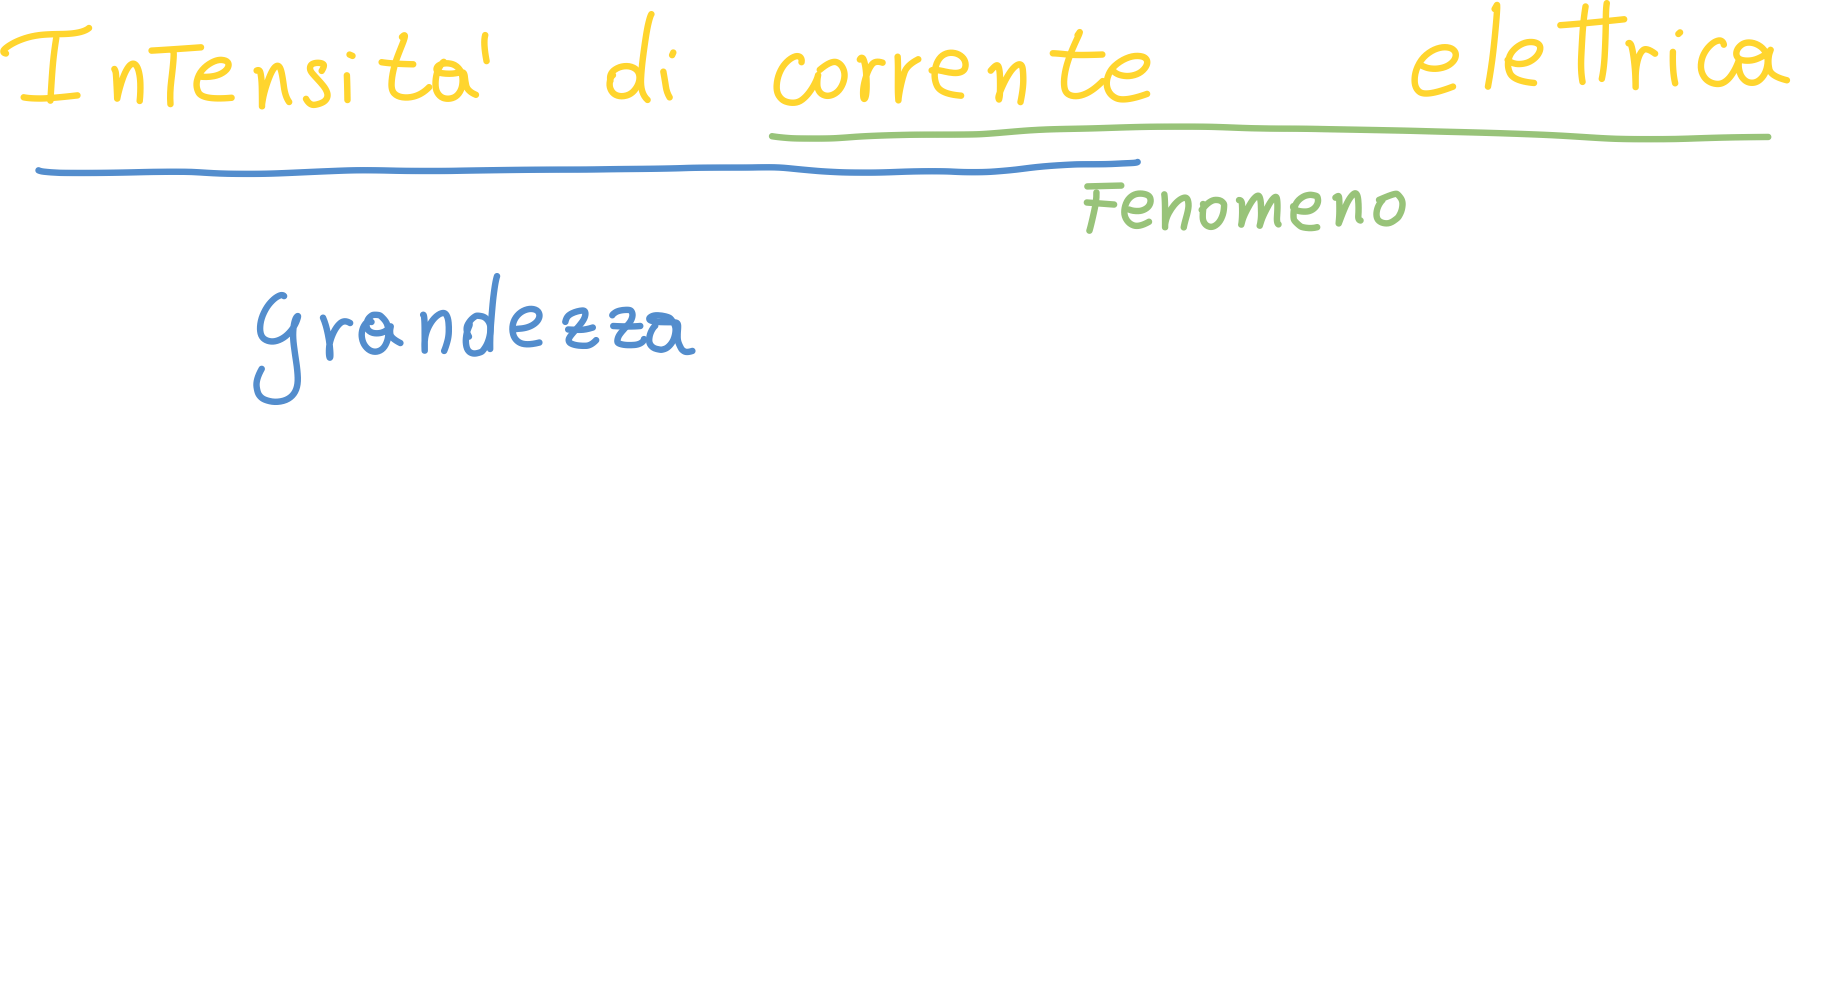 Intensita' di corrente elettrica
Fenomeno
Grandezza